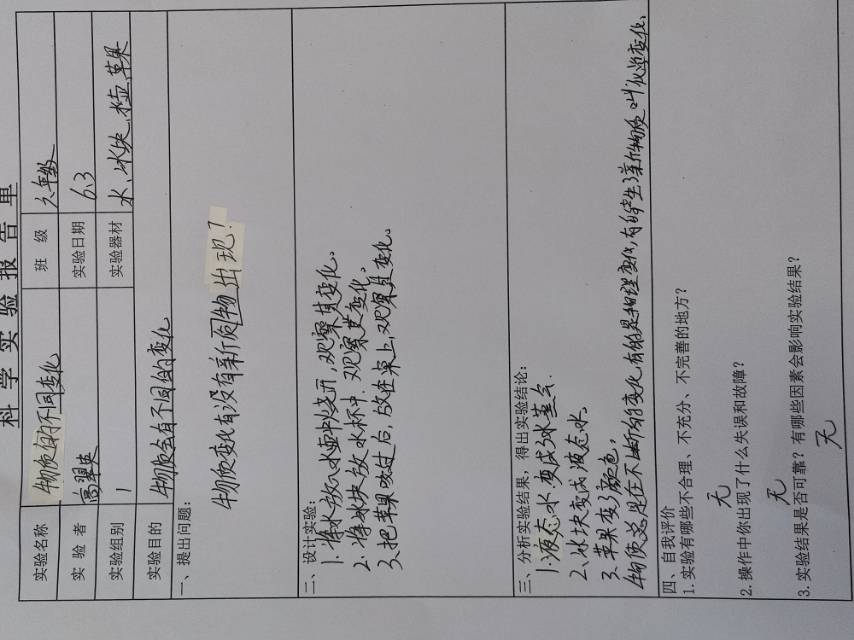 科学实验报告单
实验名称 物质的不同变化 班级 六年级
实验者 高翠英 实验日期 6.3
实验组别 1 实验器材 水、冰块、水壶、苹果
实验目的 物质会有不同的变化
一、提出问题：
物质变化有没有新质物出现？
二、设计实验：
1.将水放入水壶中烧开，观察其变化。
2.将冰块放水杯中，观察其变化。
3.把苹果咬过后，放在桌上，观察其变化。
三、分析实验结果，得出实验结论：
1.液态水变成了水蒸气.
2、冰块变成液态水.
3.苹果变了颜色，
物质总是在不断的变化，有的是物理变化，有的产生了新的物质叫化学变化.
四、自我评价
1.实验有哪些不合理、不充分、不完善的地方？
无
2.操作中你出现了什么失误和故障？
无
3.实验结果是否可靠？有哪些因素会影响实验结果？
无